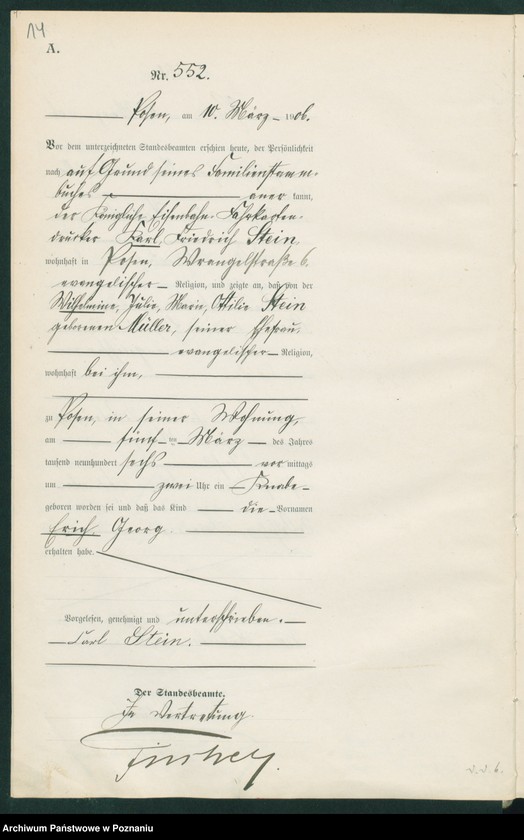 14
A.
Nr. 552.
Posen, am 10. März 1906.
Vor dem unterzeichneten Standesbeamten erschien heute, der Persönlichkeit
nach auf Grund seines Familienstamm-
buches aner kannt,
der Königliche Eisenbahn-Fahrkarten-
drucker Karl Friedrich Stein,
wohnhaft in Posen, Wrangelstraße 6,
evangelischer Religion, und zeigte an, daß von der
Wilhelmine, Julie, Marie, Ottilie Stein
geborenen Müller, seiner Ehefrau,
evangelischer Religion,
wohnhaft bei ihm,
zu Posen, in seiner Wohnung,
am fünf ten März des Jahres
tausend neunhundert sechs vor mittags
um zwei Uhr ein Knabe
geboren worden sei und daß das Kind die Vornamen
Erich Georg
erhalten habe.
Vorgelesen, genehmigt und unterschrieben.
Karl Stein.
Der Standesbeamte.
In Vertretung
Archiwum Państwowe w Poznaniu